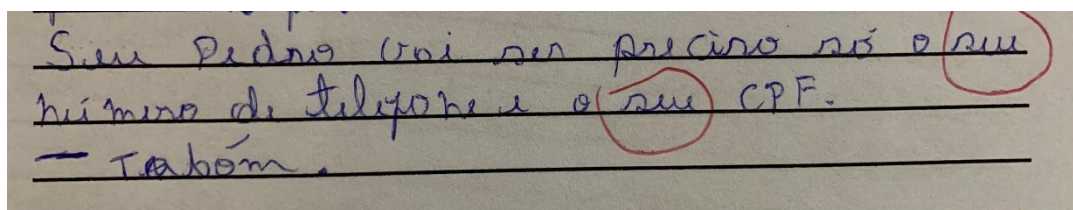 Seu Pedro vai ser preciso só o seu
número de telefone e o seu CPF.
— Tabóm.